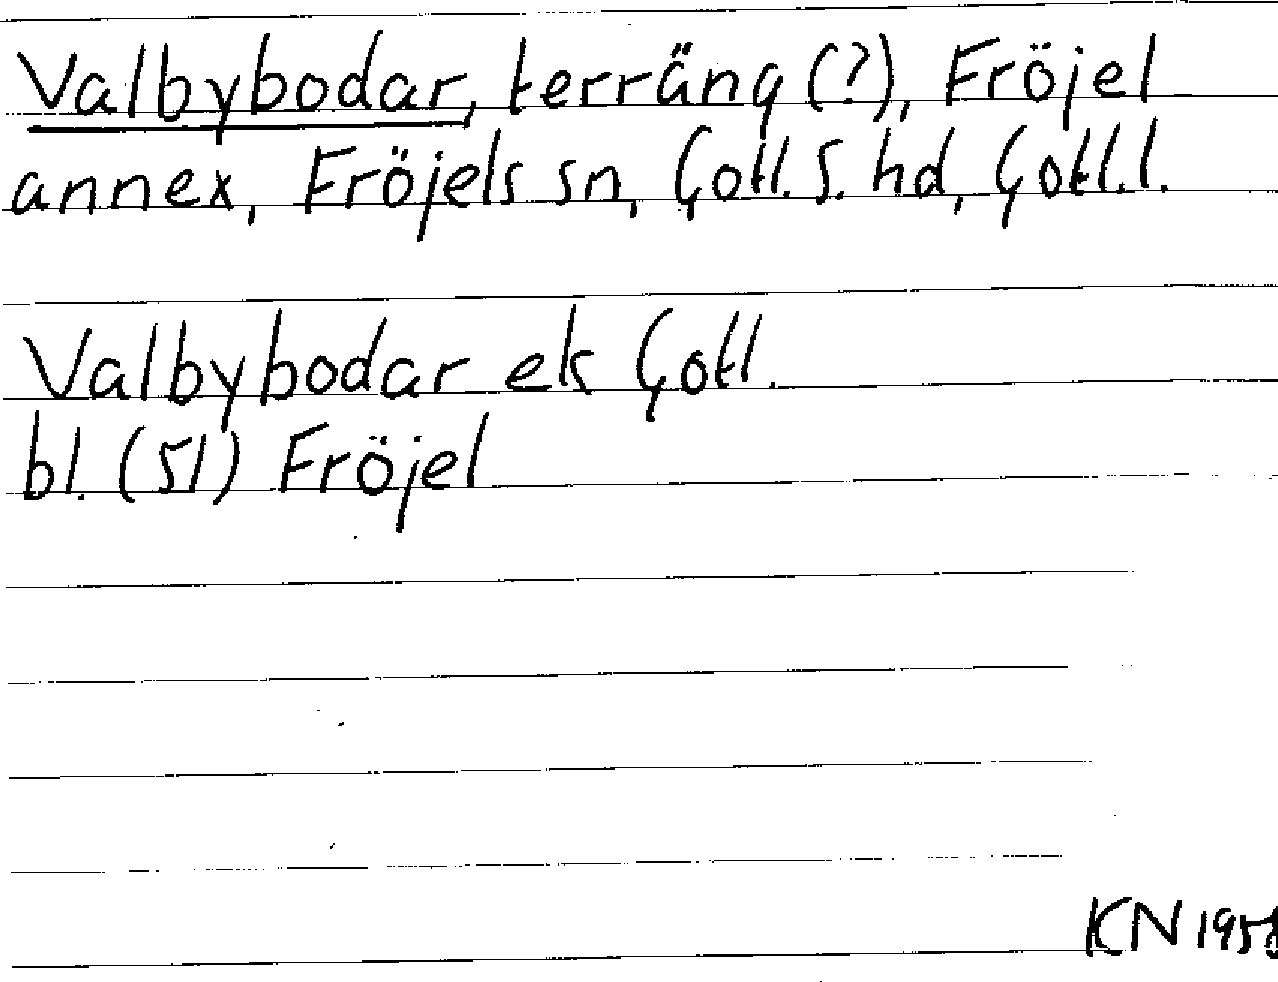 Valbybodar, terräng (?), Fröjel
annex, Fröjels sn, Gotl. S. hd, Gotl. l.
Valbybodar ek Gotl.
bl. (51) Fröjel
KN